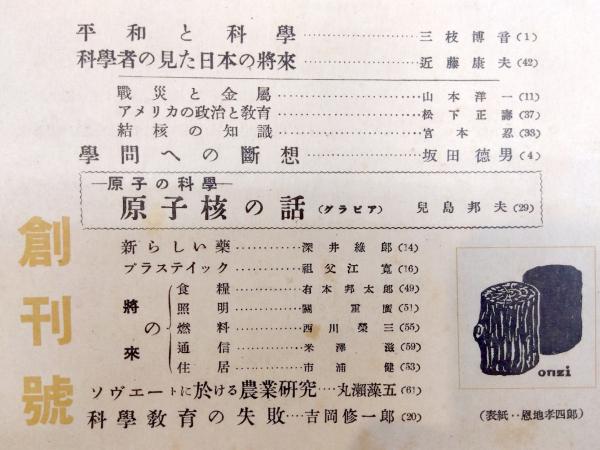 平和と科學…………三枝博音(1)
科學者の見た日本の將來……近藤康夫(42)
戰災と金屬…………山本洋一(11)
アメリカの政治と教育……松下正壽(37)
結核の知識…………宮本忍(33)
學問への斷想…………坂田德男(4)
―原子の科學―
原子核の話(グラビア) 兒島邦夫(29)
新らしい藥…………深井綠郎(14)
プラスティック…………祖父江寬(16)
將來の
食糧……有本邦太郎(49)
照明……關重廣(51)
燃料……西川榮三(55)
通信……米澤滋(59)
住居……市浦健(53)
ソヴエートに於ける農業研究…丸瀨藻五(61)
科學敎育の失敗…吉岡修一郎(20)
創刊號
onzi
(表紙‥恩地孝四郎)